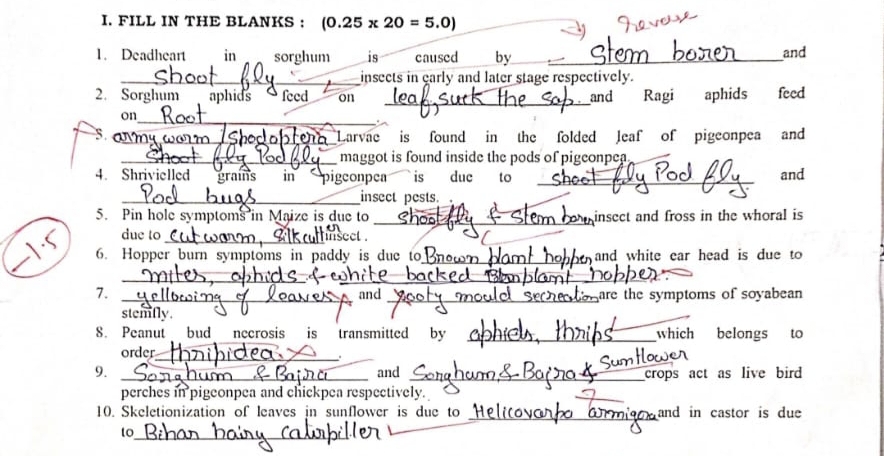 I. FILL IN THE BLANKS : (0.25 x 20 = 5.0)
Reverse
1. Deadheart in sorghum is caused by stem borer and
shoot fly insects in early and later stage respectively.
2. Sorghum aphids feed on leaf, suck the sap. and Ragi aphids feed
on Root
3. army worm / Spodoptera Larvae is found in the folded leaf of pigeonpea and
Shoot fly Pod fly maggot is found inside the pods of pigeonpea.
4. Shrivielled grains in pigeonpea is due to shoot fly Pod fly. and
Pod bugs insect pests.
5. Pin hole symptoms in Maize is due to shoot fly & stem borer insect and fross in the whoral is
due to cut worm, insect.
-1.5
6. Hopper burn symptoms in paddy is due to Brown plant hopper and white ear head is due to
mites, aphids & white backed plant hopper.
7. yellowing of leaves and sooty mould secreation are the symptoms of soyabean
stemfly.
8. Peanut bud necrosis is transmitted by aphids, thrips which belongs to
order thripidea.
9. Sorghum & Bajra and Sorghum, & Bajra & Sunflower crops act as live bird
perches in pigeonpea and chickpea respectively.
10. Skeletionization of leaves in sunflower is due to Helicovarpa armigera and in castor is due
to Bihar hairy caterpiller